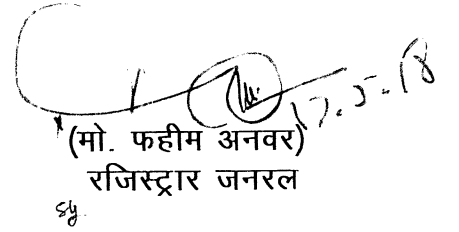 17.5.18
(मो. फहीम अनवर)
रजिस्ट्रार जनरल